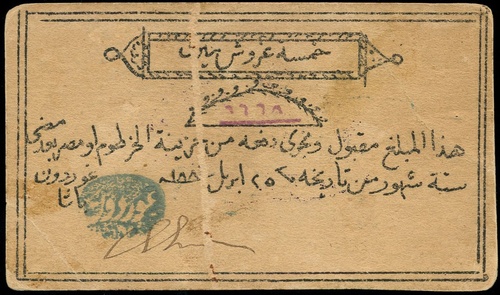 خمسة غروش ميرى
٩٦٦٨
هذا المبلغ مقبول ويجرى دفعه من خزينة الخرطوم او مصر بعد مضى
ستة شهور من تاريخه ٢٥ ابريل ١٨٨٤
غوردون
باشا